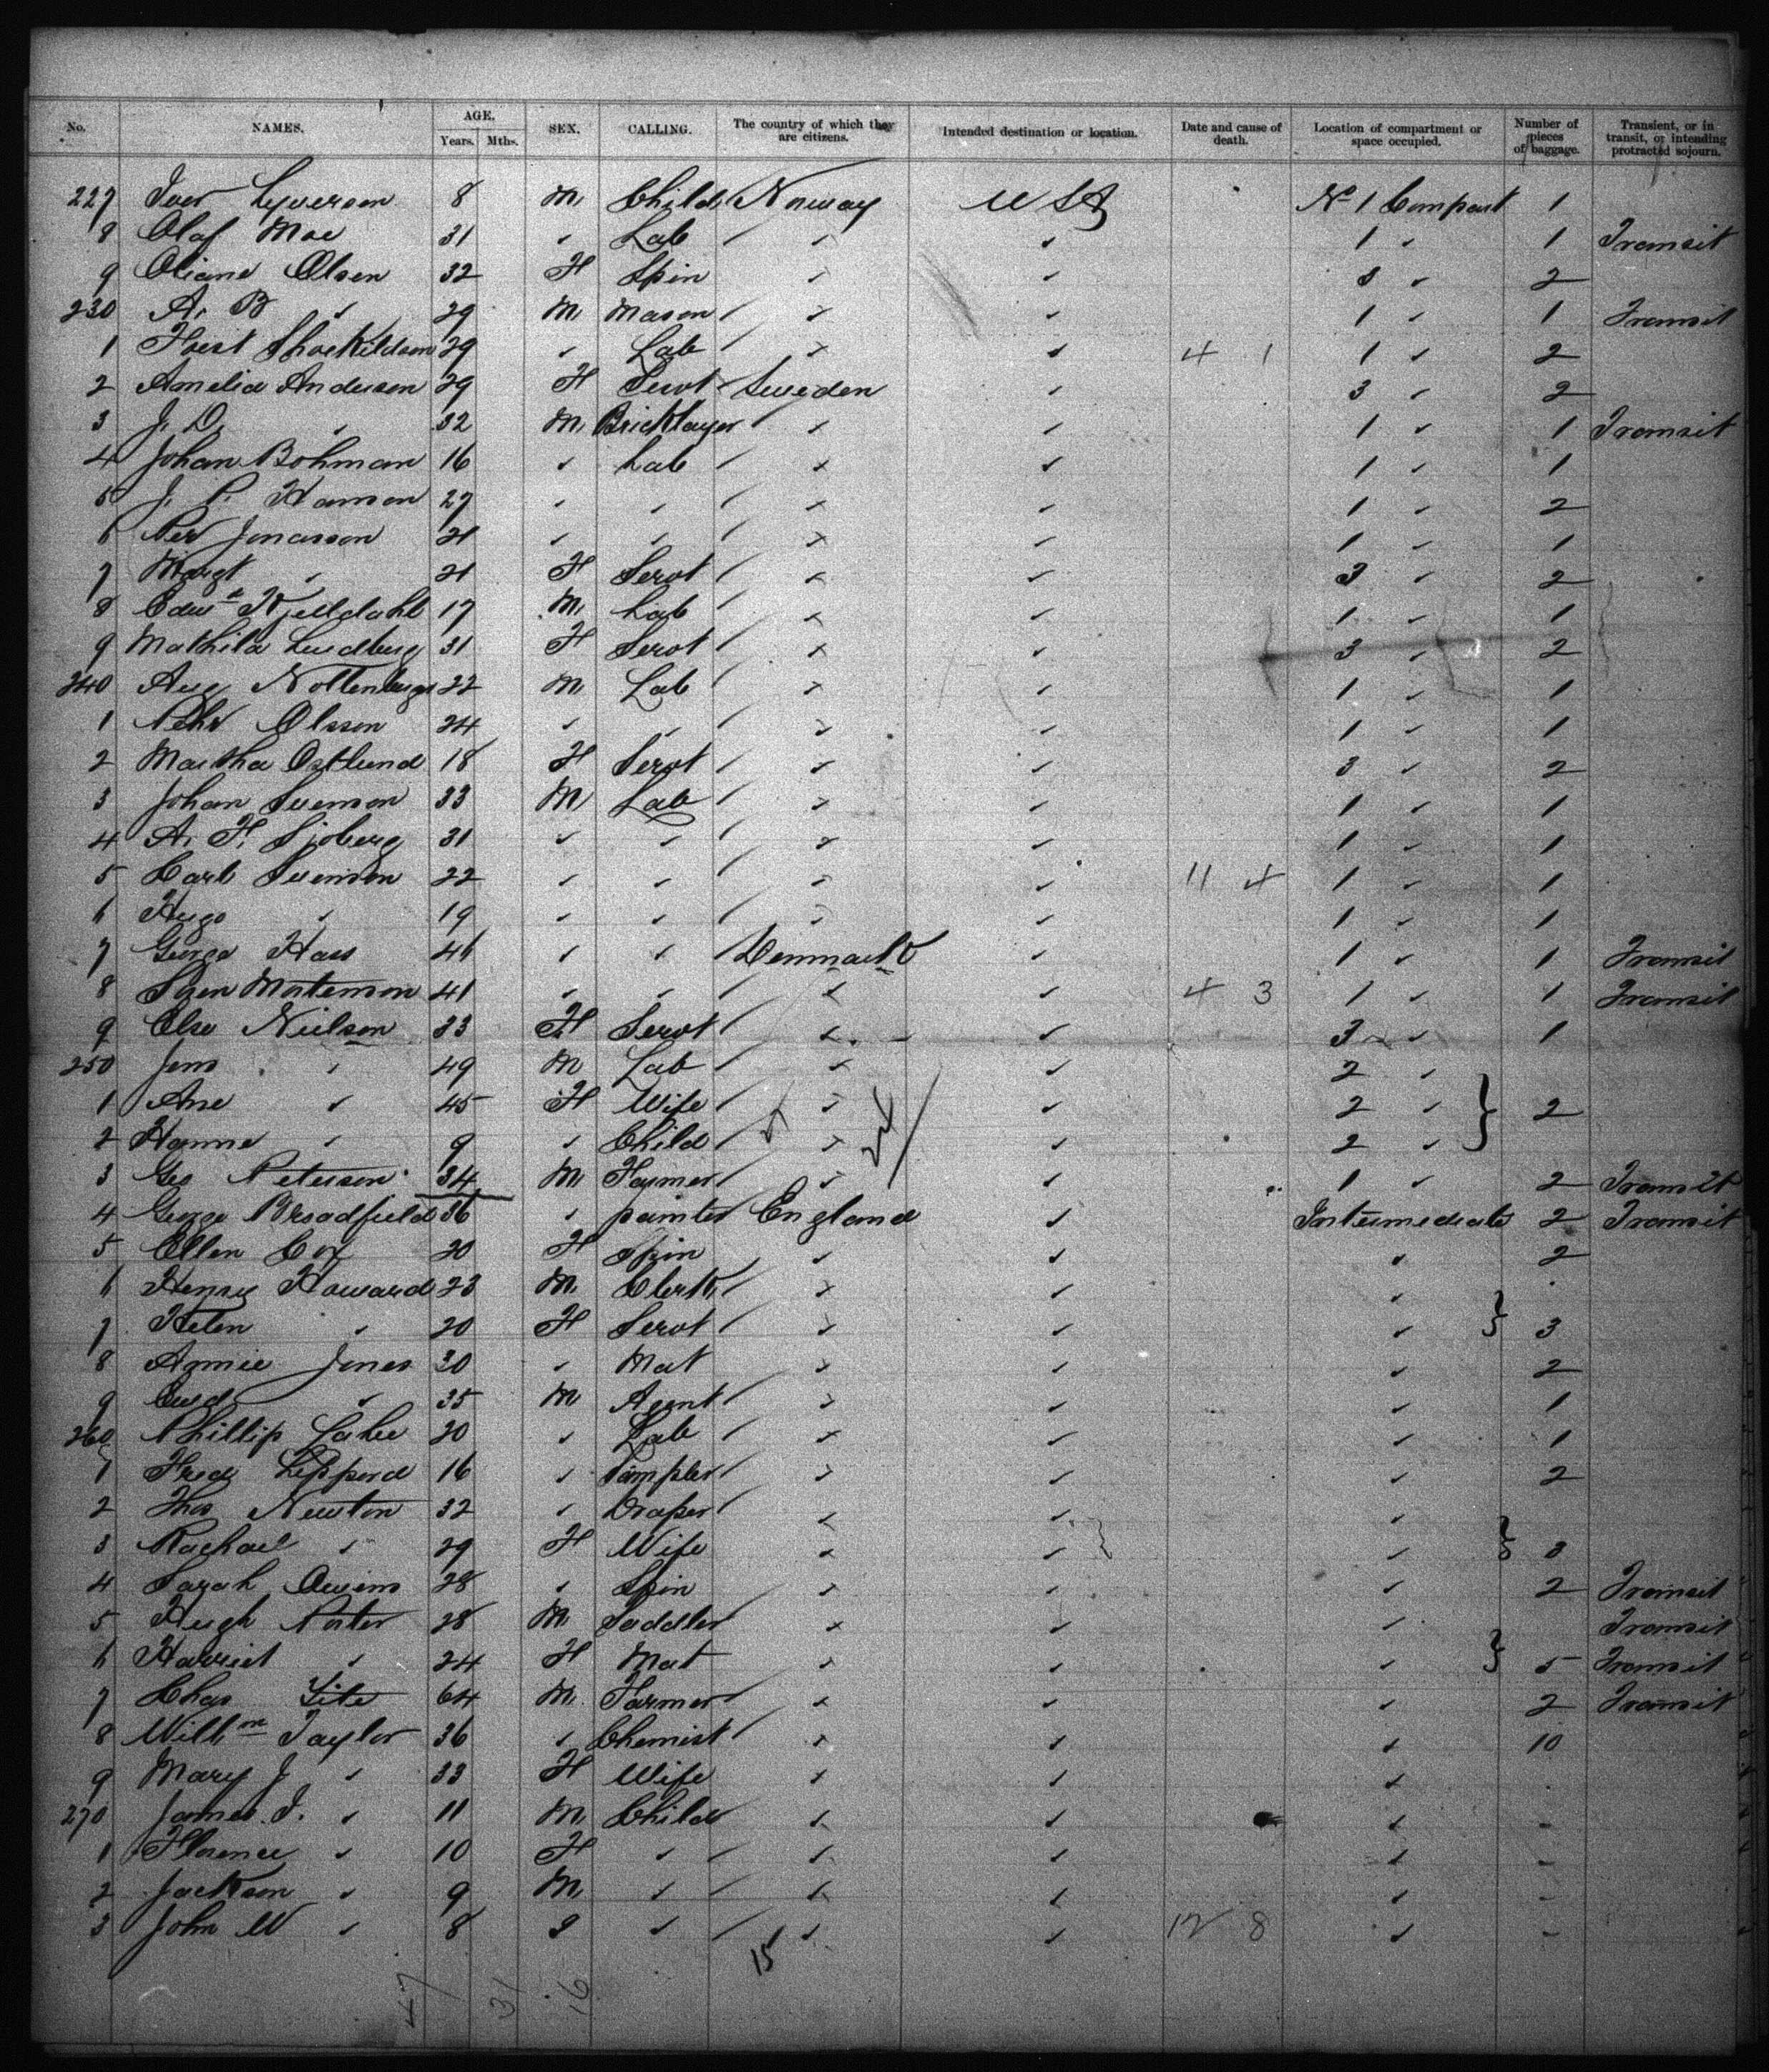 No. NAMES. AGE. Years. Mths. SEX. CALLING. The country of which they are citizens. Intended destination or location. Date and cause of death. Location of compartment or space occupied. Number of pieces of baggage. Transient, or in transit, or intending protracted sojourn.
227 Iver Lyverson 8 M Child Norway USA No 1 Compart 1
8 Olaf Moe 31 " Lab " " 1 " 1 Transit
9 Oliane Olsen 32 F Spin " " 3 " 2
230 A. B " 29 M Mason " " 1 " 1 Transit
1 29 " Lab " " 4 1 1 " 2
2 Amelia Anderson 29 F Servt Sweden " 3 " 2
3 J. D. " 32 M Bricklayer " " 1 " 1 Transit
4 Johan Bohman 16 " Lab " " 1 " 1
5 J. P. Hanson 27 " " " " 1 " 2
6 Per Jonasson 21 " " " " 1 " 1
7 Margt " 21 F Servt " " 3 " 2
8 Edwd Kjelldahl 17 M Lab " " 1 " 1
9 Mathila Lundberg 31 F Servt " " 3 " 2
240 Aug Nottenberg 22 M Lab " " 1 " 1
1 Pehr Olsson 24 " " " " 1 " 1
2 Martha Ostlund 18 F Servt " " 3 " 2
3 Johan Svenson 33 M Lab " " 1 " 1
4 A. F. Sjoberg 31 " " " " 1 " 1
5 Carl Svenson 22 " " " " 11 4 1 " 1
6 Hugo " 19 " " " " 1 " 1
7 George Hass 46 " " Denmark " 1 " 1 Transit
8 Soren Mortenson 41 " " " " 4 3 1 " 1 Transit
9 Else Nielson 33 F Servt " " 3 " 1
250 Jens " 49 M Lab " " 2 "
1 Ane " 45 F Wife " " 2 " } 2
2 Hanne " 9 " Child " " 2 "
3 Geo Peterson 34 M Farmer " " 1 " 2 Transit
4 George Broadfield 36 " painter England " Intermediate 2 Transit
5 Ellen Cox 20 F Spin " " " 2
6 Henry Howard 23 M Clerk " " "
7 Helen " 20 F Servt " " " } 3
8 Annie Jones 30 " Mat " " " 2
9 " 35 M Agent " " " 1
260 Phillip 20 " Lab " " " 1
1 Fred Lepperd 16 " " " " 2
2 Thos Newton 32 " Draper " " "
3 Rachael " 29 F Wife " " " } 3
4 Sarah Owens 28 " Spin " " " 2 Transit
5 Hugh Porter 28 M Saddler " " " Transit
6 Harriet " 24 F Mat " " " } 5 Transit
7 Chas 64 M Farmer " " " 2 Transit
8 Willm Taylor 36 " Chemist " " " 10
9 Mary J " 33 F Wife " " "
270 James I. " 11 M Child " " " -
1 Florence " 10 F " " " " -
2 Jackson " 9 M " " " " -
3 John W " 8 " " " " 12 8 " -
15
47 31 16